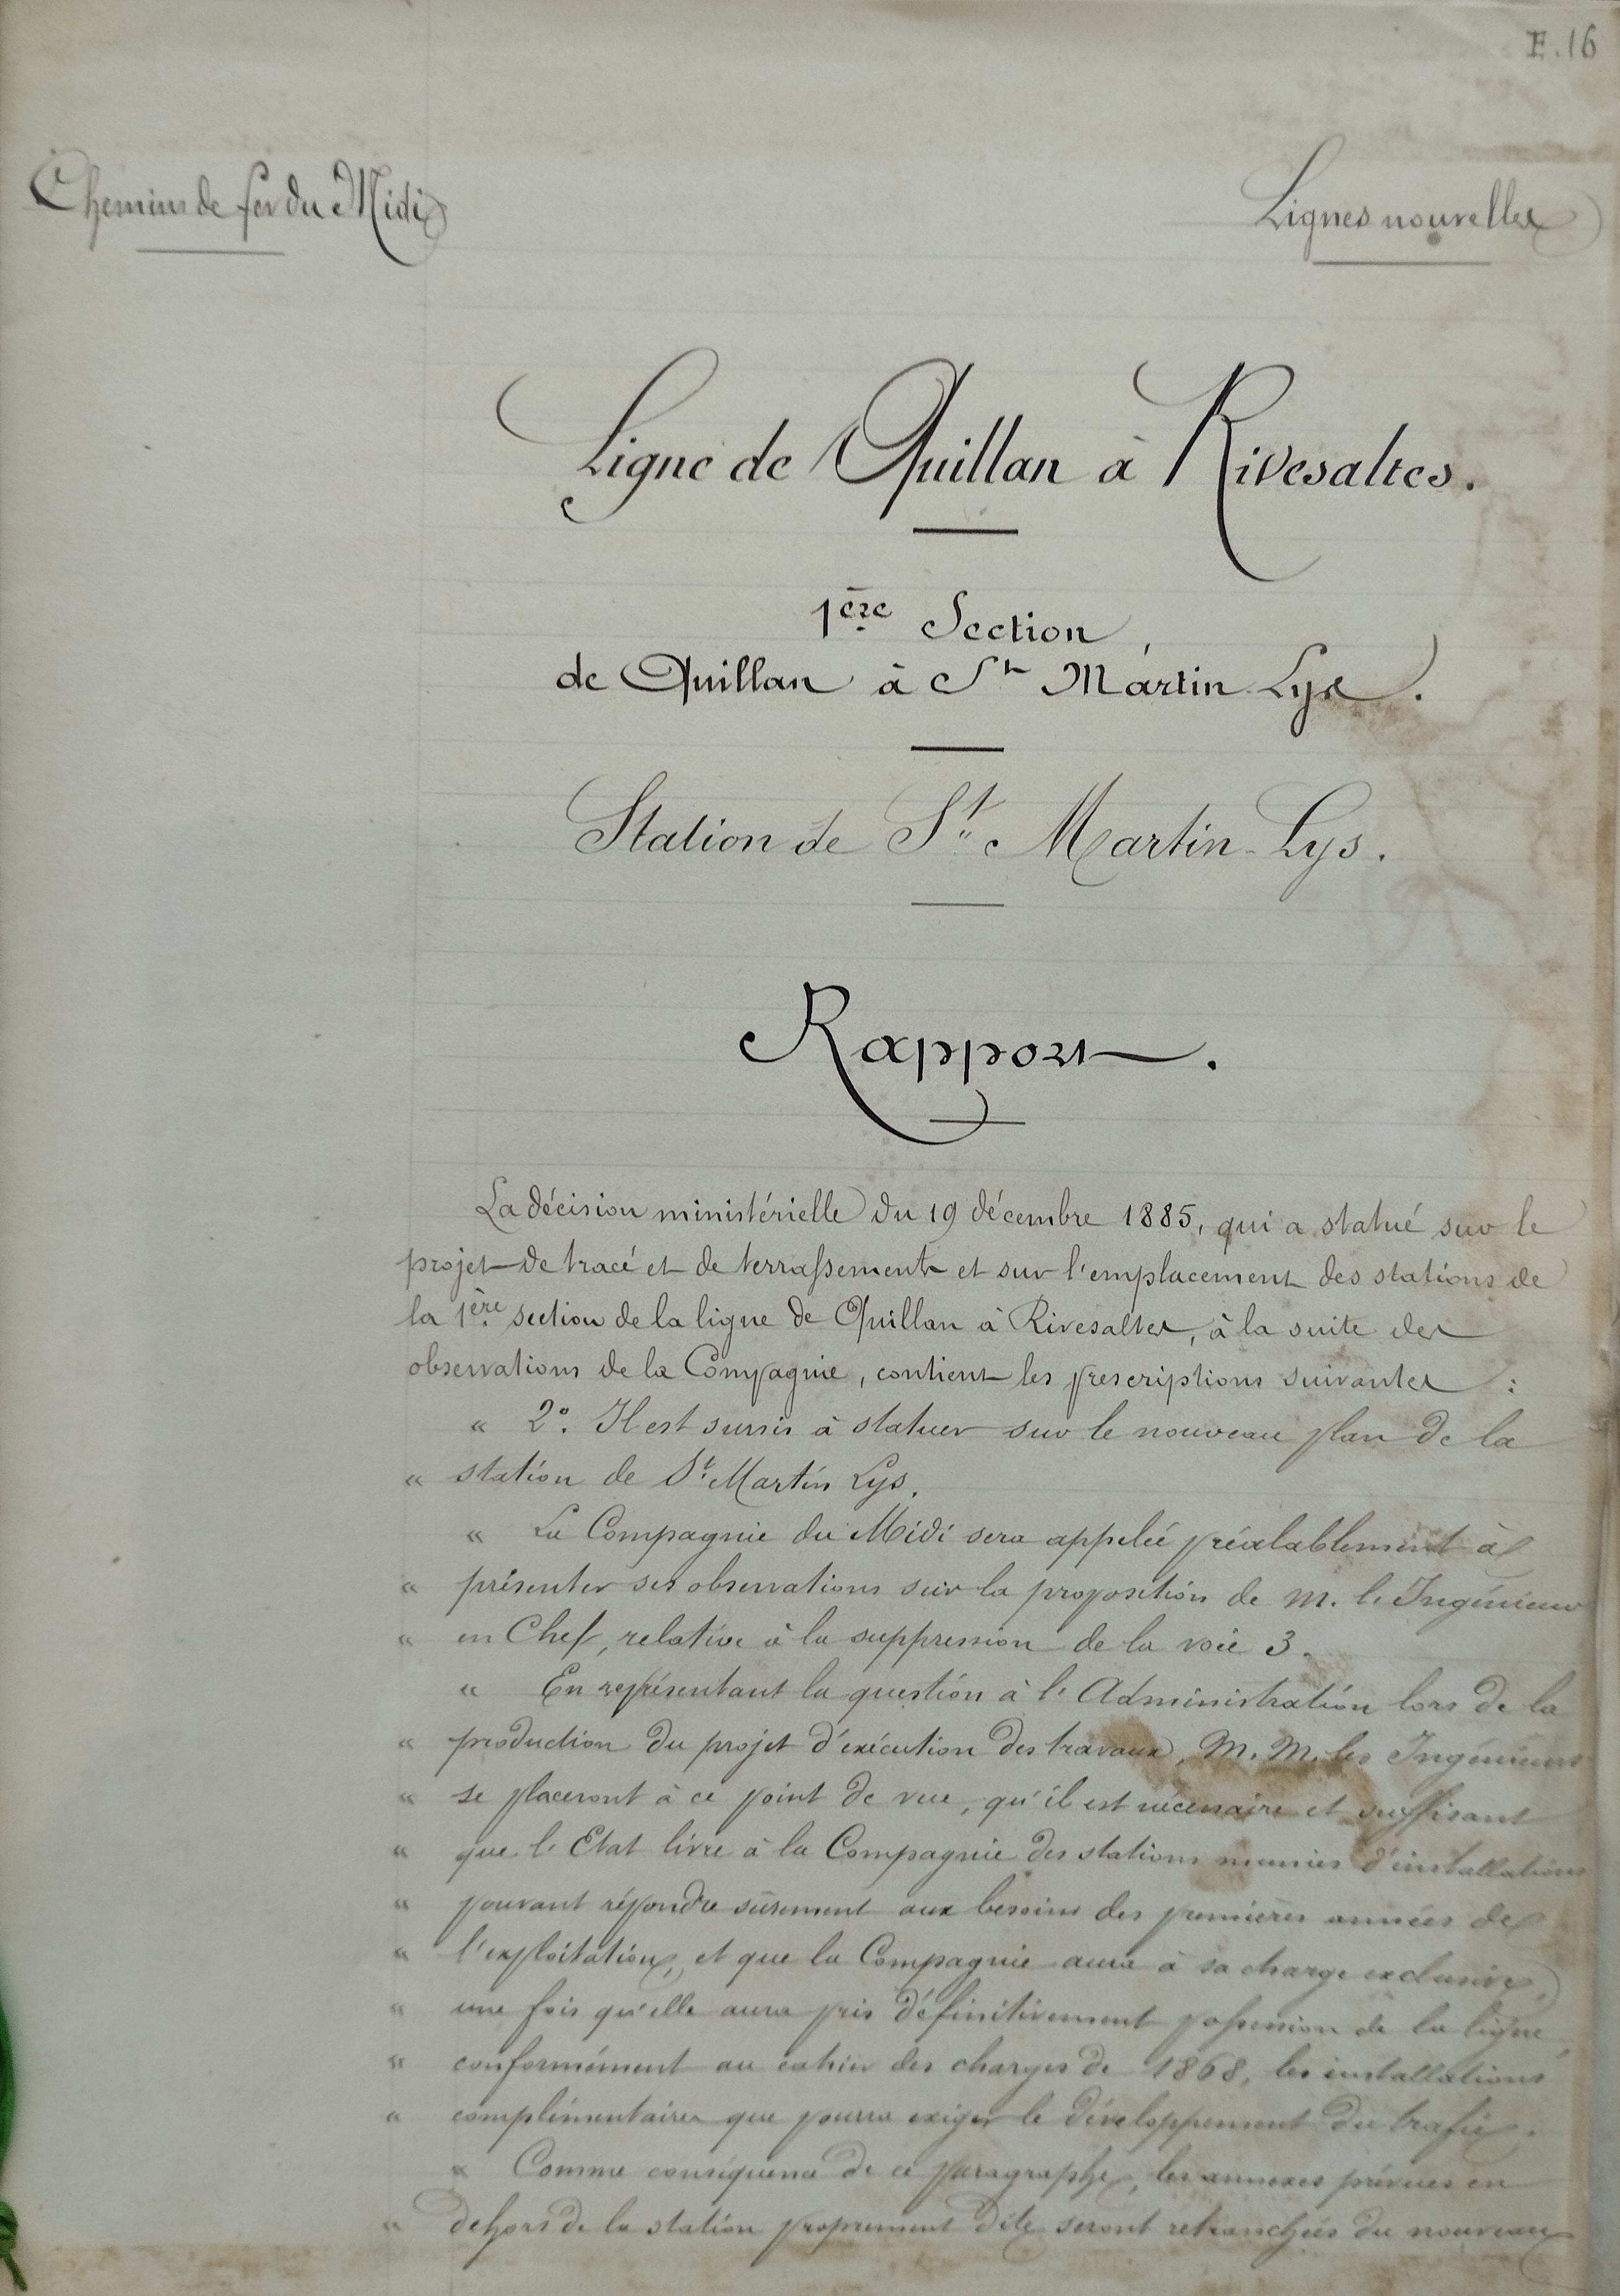 E.16
Chemins de fer du Midi
Lignes nouvelles
Ligne de Quillan à Rivesaltes.
1ère Section,
de Quillan à St Martin Lys.
Station de St Martin-Lys.
Rapport.
La décision ministérielle du 19 décembre 1885, qui a statué sur le
projet de tracé et de terrassements et sur l'emplacement des stations de
la 1ère section de la ligne de Quillan à Rivesaltes, à la suite des
observations de la Compagnie, contient les prescriptions suivantes :
" 2°. Il est sursis à statuer sur le nouveau plan de la
" station de St Martin Lys.
" La Compagnie du Midi sera appelée préalablement à
" présenter ses observations sur la proposition de M. l'Ingénieur
" en Chef, relative à la suppression de la voie 3.
" En représentant la question à l'Administration lors de la
" production du projet d'exécution des travaux, M. M. les Ingénieurs
" se placeront à ce point de vue, qu'il est nécessaire et suffisant
" que l'Etat livre à la Compagnie des stations munies d'installations
" pouvant répondre sûrement aux besoins des premières années de
" l'exploitation, et que la Compagnie aura à sa charge exclusive,
" une fois qu'elle aura pris définitivement possession de la ligne,
" conformément au cahier des charges de 1868, les installations
" complémentaires que pourra exiger le développement du trafic.
" Comme conséquence de ce paragraphe, les annexes prévues en
" dehors de la station proprement dite seront retranchées du nouveau